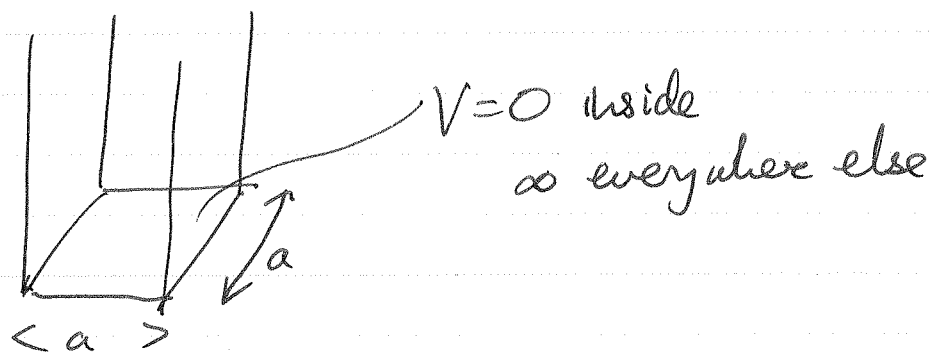 V=0 inside
∞ everywhere else
a
< a >